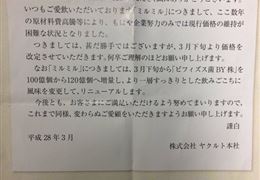 いつもご愛飲いただいております「ミルミル」につきまして、ここ数年
の原材料費高騰等により、もはや企業努力のみでは現行価格の維持が
困難な状況となりました。
つきましては、甚だ勝手ではございますが、3月下旬より価格を
改定させていただきます。何卒ご理解のほどお願い申し上げます。
なお「ミルミル」につきましては、3月下旬から「ビフィズス菌BY株」を
100億個から120億個へ増量し、より一層すっきりとした飲みごこちに
風味を変更して、リニューアルします。
今後とも、お客さまにご満足いただけるよう努めてまいりますので、
これまで同様、変わらぬご愛顧をいただきますようお願い申し上げます。
謹白
平成28年3月
株式会社 ヤクルト本社